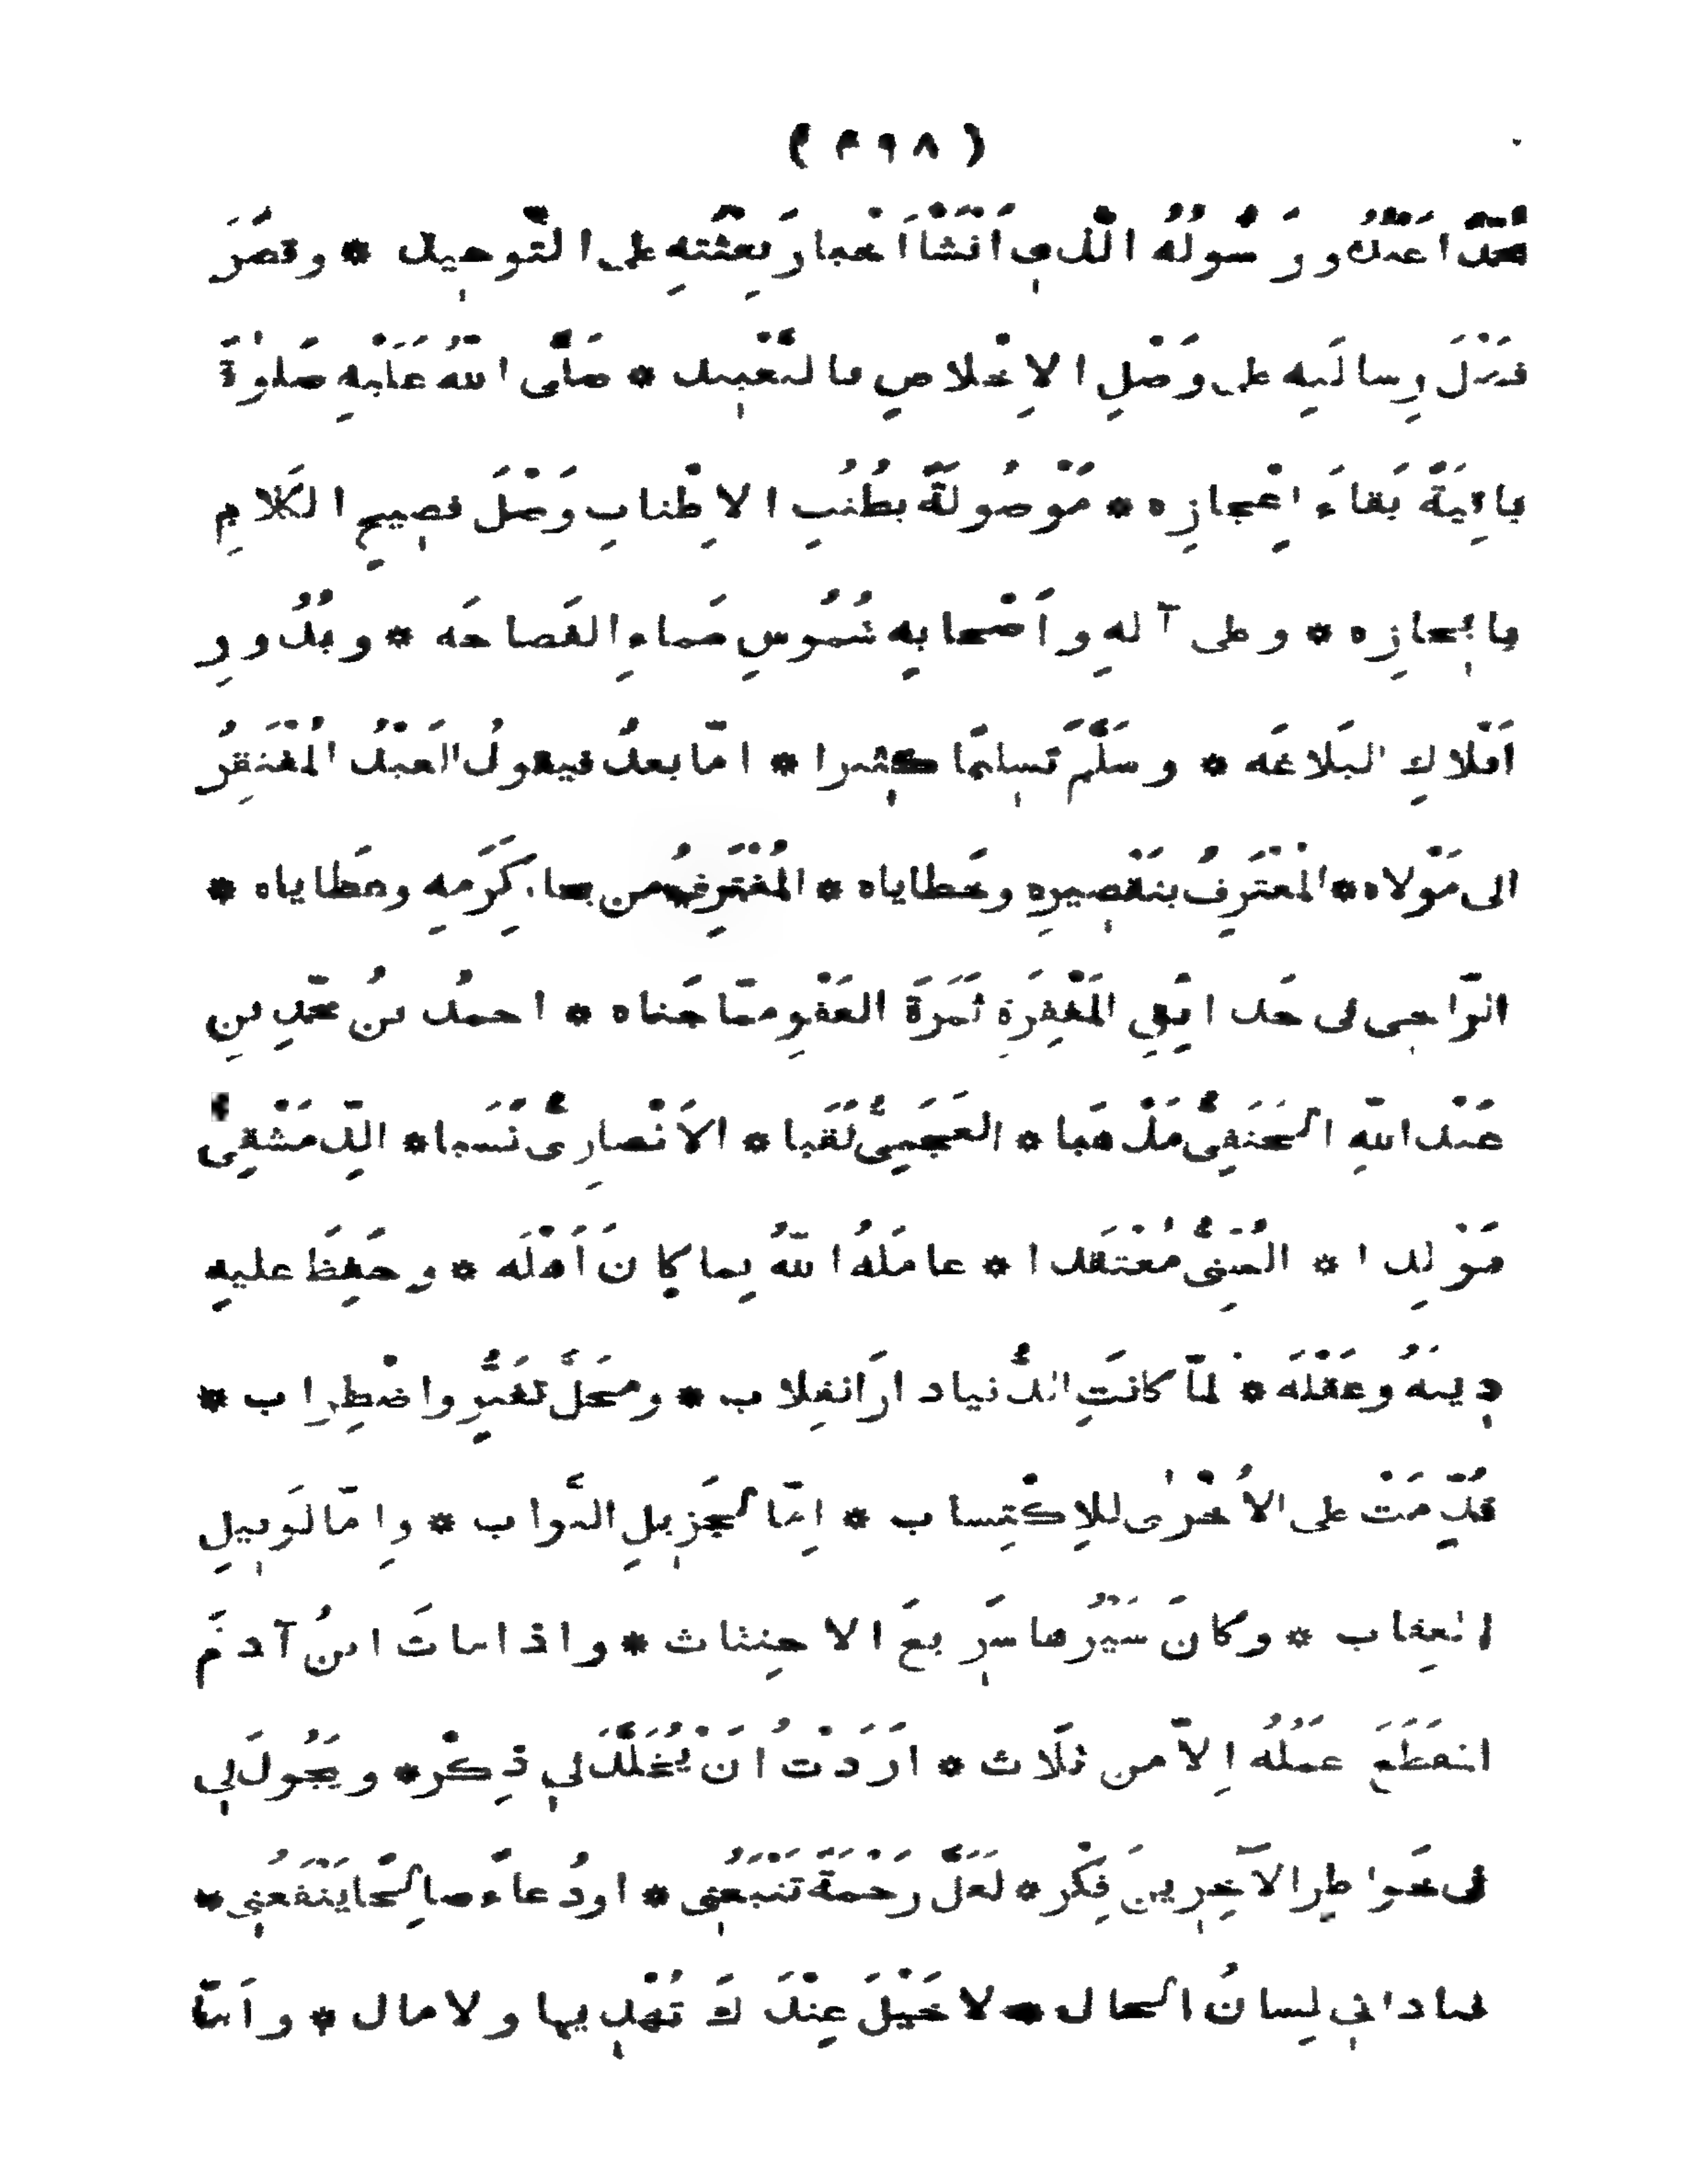 ( ٤٩٨ )
مُحَمَّدًا عَبْدُهُ وَرَسُولُهُ الَّذِي أَنْشَأَ أَخْبارَ بِعْثَتِهِ على التَّوحِيد * وقَصَرَ
فَضْلَ رِسالَتِهِ على وَصْلِ الإِخْلاصِ بالتَّعْبِيد * صَلَّى اللهُ عَلَيْهِ صَلوٰةً
باقِيَةً بَقاءَ إِعْجازِه * مَوْصُولَةً بطُنُبِ الاِطْنابِ وَحْلَ فصِيحِ الكَلامِ
بِإيجازِه * وعلى آلهِ وأَصْحابِهِ شُمُوسِ سَماءِ الفَصاحَه * وبُدُورِ
أفْلاكِ البَلاغَه * وسَلَّمَ تَسلِيمًا كثِيرا * امّا بعدُ فيقولُ العَبْدُ المُفْتَقِرُ
الى مَوْلاه * المُعْتَرِفُ بتَقْصِيرِهِ وخَطاياه * المُغْتَرِفُ من بحارِ كَرَمِهِ وعَطاياه *
الرّاجِى فى حَدائِقِ المَغْفِرَةِ ثَمَرَةَ العَفْوِ ممّا جَناه * احمدُ بنُ محمّدِ بنِ
عَبْدِ اللهِ الحَنَفِىُّ مَذْهَبا * العَجَمِىُّ لَقَبا * الأَنْصارِىُّ نَسَبا * الدِّمَشْقِىُّ
مَوْلِدا * السُّنِّىُّ مُعْتَقَدا * عامَلَهُ اللهُ بِما كانَ أَهْلَه * وحَفِظَ عليهِ
دِينَهُ وعَقْلَه * لمّا كانَتِ الدُّنيا دارَ انقِلاب * ومحَلَّ تَغَيُّرٍ واضْطِراب *
قُدِّمَتْ على الأُخْرىٰ لِلاِكْتِساب * اِمّا لجَزِيلِ الثَّواب * واِمّا لوَبِيلِ
العِقاب * وكانَ سَيْرُها سَرِيعَ الاحتِثاث * واذا ماتَ ابنُ آدَمَ
انقَطَعَ عَمَلُهُ إِلاّ من ثَلَاث * ارَدْتُ أنْ يُخَلَّدَ لِي ذِكْر * ويَجُولَ لِي
فى خَواطِرِ الآخِرِينَ فِكْر * لَعَلَّ رَحْمَةً تَتْبَعُنِى * او دُعاءً صالِحًا يَنْفَعُنِى *
فنادانِي لِسانُ الحال * لا خَيْلَ عِنْدَكَ تُهْدِيها ولا مال * وأَمّا